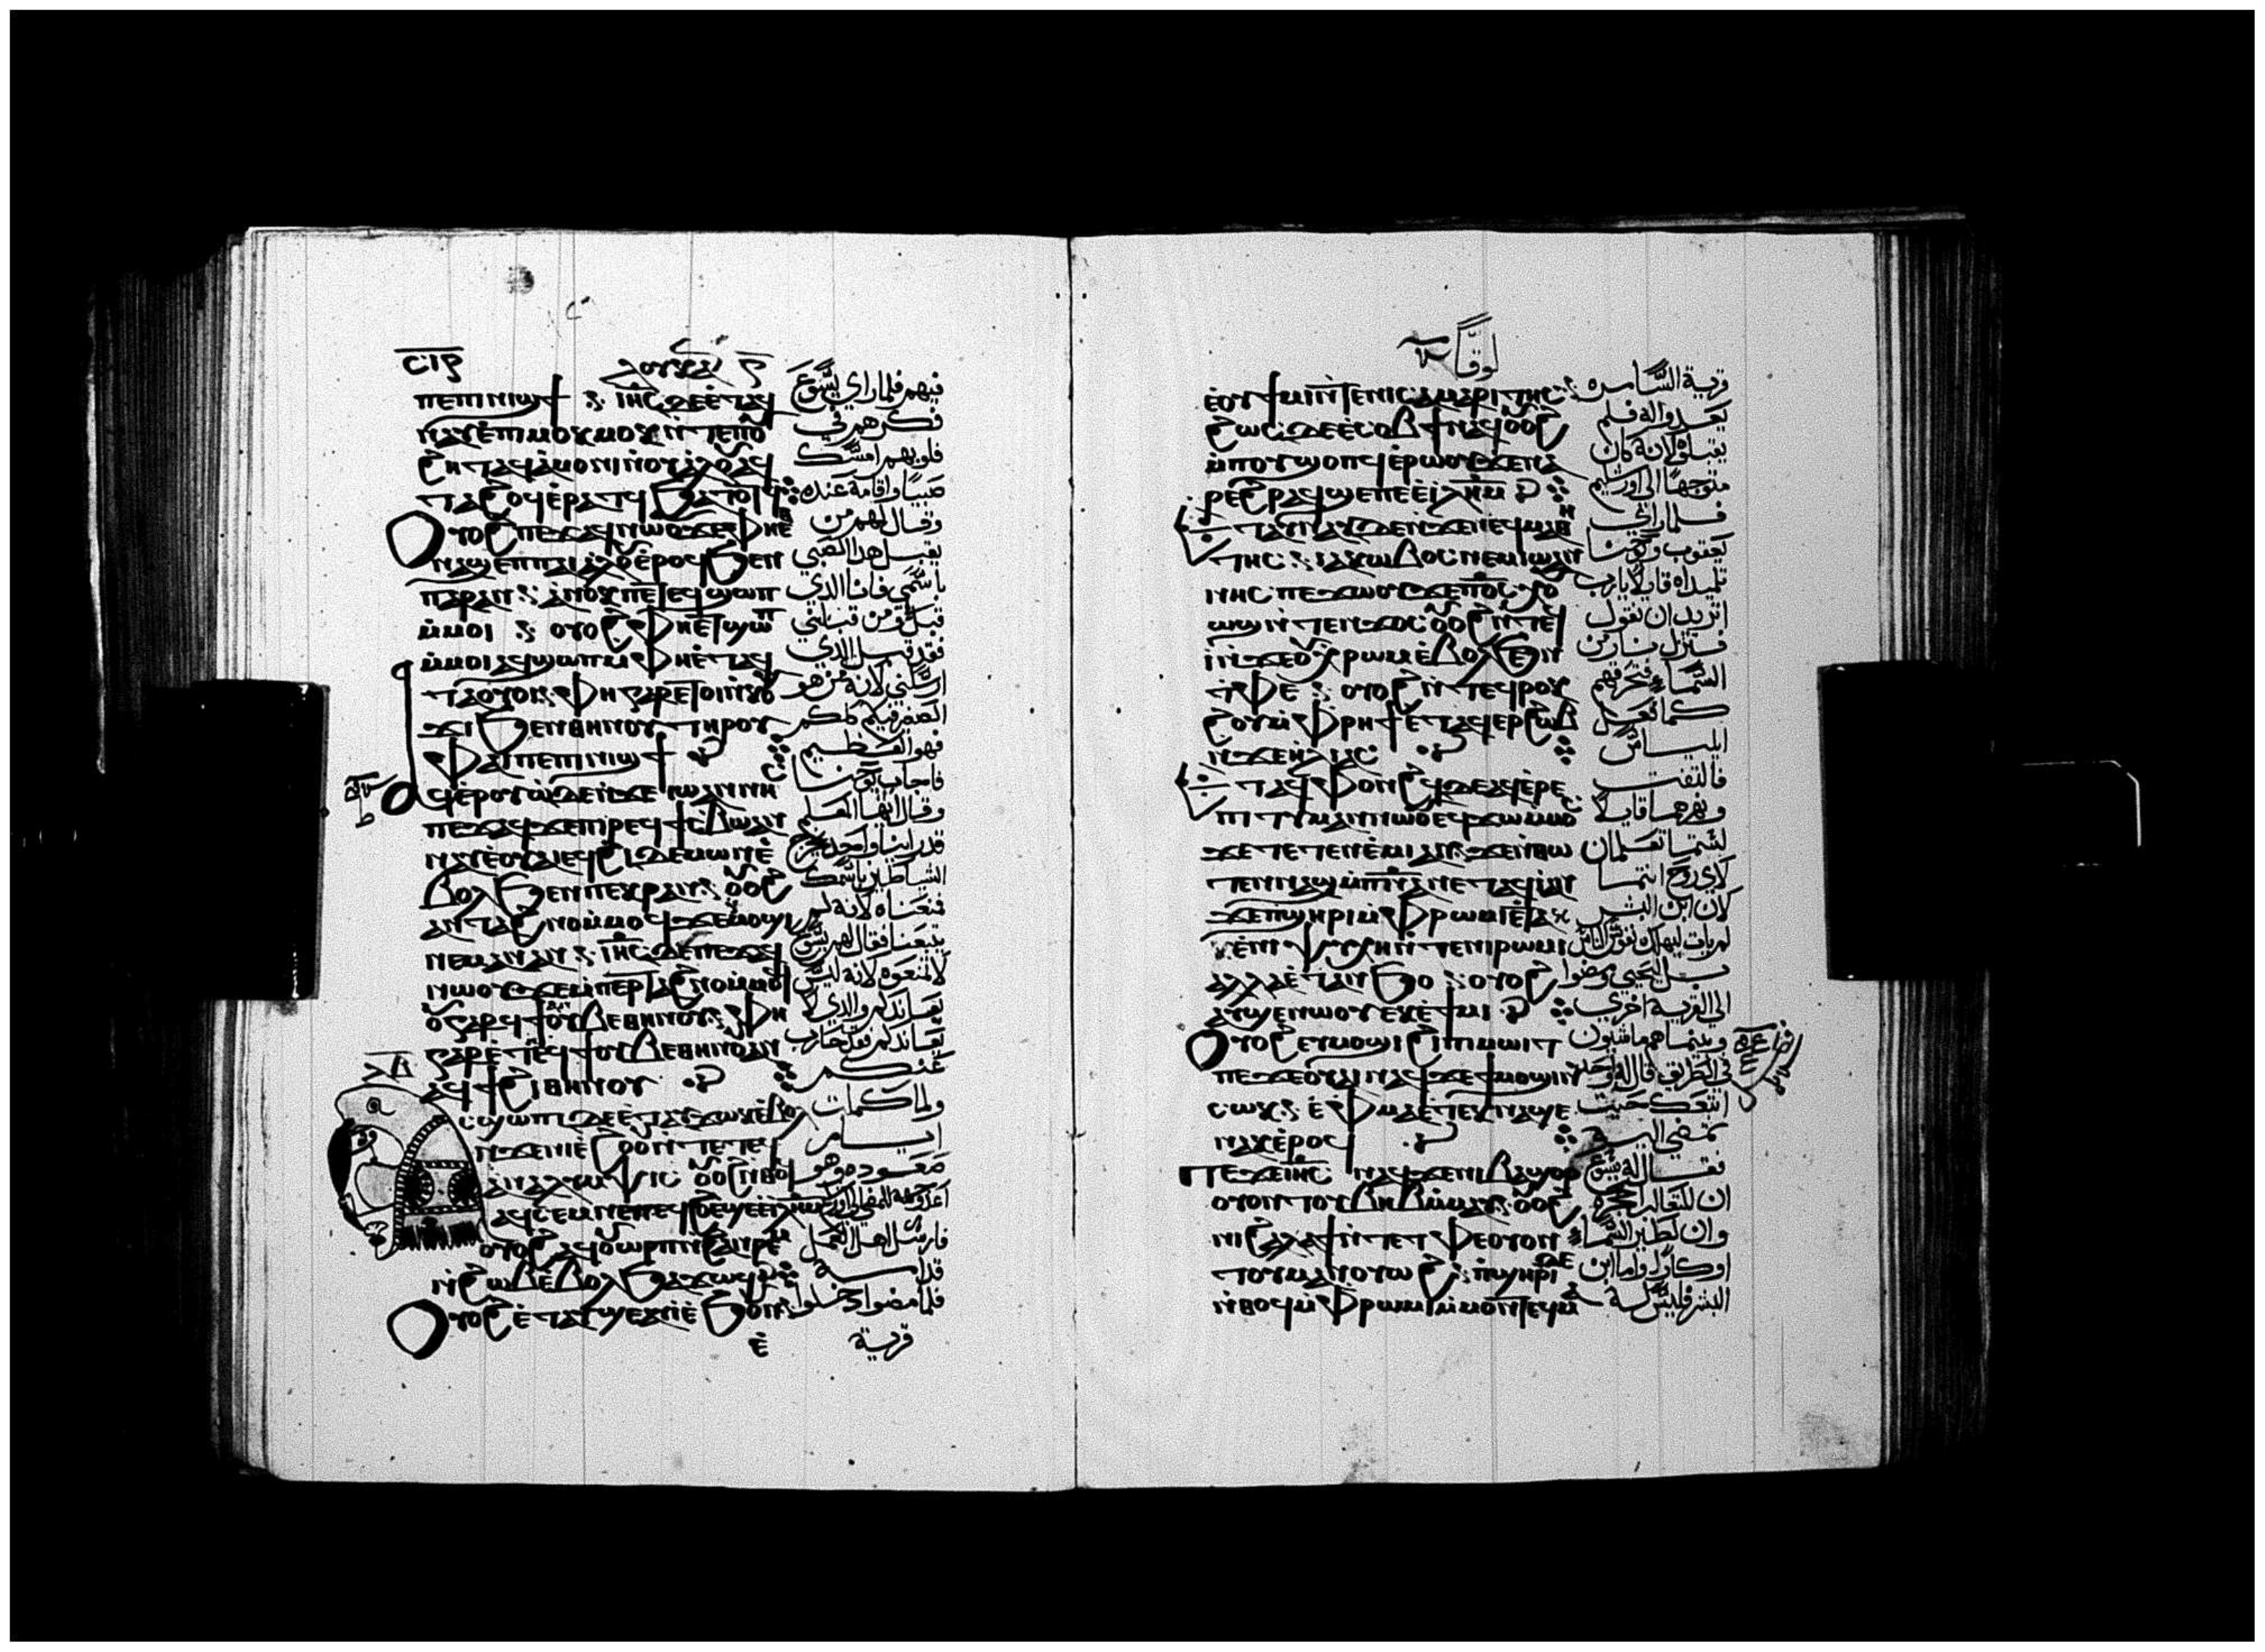 ⲥⲓⲋ
ⲗⲟⲩⲕⲁⲥ
ⲡⲉⲡⲓⲛⲓϣϯ ⲓⲏⲥ ⲇⲉ ⲉⲧⲁϥ
ⲛⲁⲩ ⲉⲡⲓⲙⲟⲕⲙⲉⲕ ⲛⲧⲉ ⲡⲟⲩ
ϩⲏⲧ ⲁϥⲁⲙⲟⲛⲓ ⲛⲟⲩⲁⲗⲟⲩ ⲁϥ
ⲧⲁϩⲟϥ ⲉⲣⲁⲧϥ ϧⲁⲧⲟⲧϥ
ⲟⲩⲟϩ ⲡⲉϫⲁϥ ⲛⲱⲟⲩ ϫⲉ ⲫⲏⲉⲑ
ⲛⲁϣⲉⲡ ⲡⲁⲓⲁⲗⲟⲩ ⲉⲣⲟϥ ϧⲉⲛ
ⲡⲁⲣⲁⲛ ⲁⲛⲟⲕ ⲡⲉⲧⲉϥϣⲱⲡ
ⲙⲙⲟⲓ ⲟⲩⲟϩ ⲫⲏⲉⲧϣⲱⲡ
ⲙⲙⲟⲓ ⲁϥϣⲱⲡ ⲙⲫⲏⲉⲧⲁϥ
ⲧⲁⲟⲩⲟⲓ ⲫⲏ ⲅⲁⲣ ⲉⲧⲟⲓ ⲛⲕⲟⲩ
ϫⲓ ϧⲉⲛ ⲑⲏⲛⲟⲩ ⲧⲏⲣⲟⲩ
ⲫⲁⲓ ⲡⲉ ⲡⲓⲛⲓϣϯ
ⲁϥⲉⲣⲟⲩⲱ ⲇⲉ ⲛϫⲉ ⲓⲱⲁⲛⲛⲏⲥ
ⲡⲉϫⲁϥ ϫⲉ ⲡⲓⲣⲉϥϯⲥⲃⲱ ⲁⲛ
ⲛⲁⲩ ⲉⲟⲩⲁⲓ ⲉϥϩⲓ ⲇⲉⲙⲱⲛ ⲉ
ⲃⲟⲗ ϧⲉⲛ ⲡⲉⲕⲣⲁⲛ ⲟⲩⲟϩ
ⲁⲛⲧⲁϩⲛⲟ ⲙⲙⲟϥ ϫⲉ ϥⲙⲟϣⲓ
ⲛⲉⲙⲁⲛ ⲁⲛ ⲓⲏⲥ ⲇⲉ ⲡⲉϫⲁϥ
ⲛⲱⲟⲩ ϫⲉ ⲙⲡⲉⲣⲧⲁϩⲛⲟ ⲙⲙⲟϥ
ⲅⲁⲣ ϥϯ ⲟⲩⲃⲉ ⲑⲏⲛⲟⲩ ⲁⲛ ⲫⲏ
ⲅⲁⲣ ⲉⲧⲉ ⲛϥϯ ⲟⲩⲃⲉ ⲑⲏⲛⲟⲩ ⲁⲛ
ⲁϥϯ ϩⲓ ⲑⲏⲛⲟⲩ
ⲁⲥϣⲱⲡⲓ ⲇⲉ ⲉⲧⲁⲩϫⲱⲕ ⲉⲃⲟⲗ
ⲛϫⲉ ⲛⲓⲉϩⲟⲟⲩ ⲛⲧⲉ ⲧⲉϥ
ⲁⲛⲁⲗⲩⲙⲯⲓⲥ ⲟⲩⲟϩ ⲛⲑⲟϥ
ⲁϥⲥⲉⲙⲛⲉ ⲡⲉϥϩⲟ ⲉϣⲉ ⲉⲓⲗⲏⲙ
ⲟⲩⲟϩ ⲁϥⲟⲩⲱⲣⲡ ⲛϩⲁⲛⲣⲉⲙ
ⲛϩⲱⲃ ⲉⲃⲟⲗ ϧⲁϫⲱϥ
ⲟⲩⲟϩ ⲉⲧⲁⲩϣⲉ ⲛⲱⲟⲩ ⲉϧⲟⲩⲛ
ⲉ
فيهم فلما راي يسوع
فكرهم في
قلوبهم امسك
صبيا واقامه عنده
وقال لهم من
يقبل هذا الصبي
باسمي فانا الذي
قبل ومن قبلني
فقد قبل الذي
ارسلني لانه من هو
الصغير فيكم كلكم
فهو العظيم
فاجاب يوحنا
وقال ايها المعلم
قد راينا واحدا يخرج
الشياطين باسمك
فمنعناه لانه لم
يتبعنا فقال لهم يسوع
لا تمنعوه لانه ليس
يعاندكم والذي لا
يعاندكم فقد يحارب
عنكم
ولما كملت
ايام
صعوده وهو
فارسل
قدامه
فلما مضوا دخلوا
قرية
لوقا
ⲉⲟⲩϯⲙⲓ ⲛⲧⲉ ⲛⲓⲥⲁⲙⲁⲣⲓⲧⲏⲥ
ϩⲱⲥ ⲇⲉ ⲉⲥⲟⲃϯ ⲛⲁϥ ⲟⲩⲟϩ
ⲙⲡⲟⲩϣⲟⲡϥ ⲉⲣⲱⲟⲩ ϫⲉ ⲛⲁ
ⲣⲉ ϩⲣⲁϥ ϣⲉ ⲡⲉ ⲉⲓⲗⲏⲙ
ⲉⲧⲁⲩⲛⲁⲩ ⲇⲉ ⲛϫⲉ ⲛⲉϥⲙⲁⲑⲏ
ⲧⲏⲥ ⲓⲁⲕⲱⲃⲟⲥ ⲛⲉⲙ ⲓⲱⲁⲛ
ⲛⲏⲥ ⲡⲉϫⲱⲟⲩ ϫⲉ ⲡⲟⲥ ⲭⲟⲩ
ⲱϣ ⲛⲧⲉⲛϫⲟⲥ ⲟⲩⲟϩ ⲛⲧⲉϥ
ⲓ ⲛϫⲉ ⲟⲩⲭⲣⲱⲙ ⲉⲃⲟⲗ ϧⲉⲛ
ⲧⲫⲉ ⲟⲩⲟϩ ⲛⲧⲉϥⲣⲟⲕ
ϩⲟⲩ ⲙⲫⲣⲏϯ ⲉⲧⲁϥⲉⲣϩⲱⲃ
ⲛϫⲉ ⲏⲗⲓⲁⲥ
ⲉⲧⲁϥⲫⲟⲛϩϥ ⲇⲉ ⲁϥⲉⲣⲉ
ⲡⲓⲧⲓⲙⲁⲛ ⲛⲱⲟⲩ ⲉϥϫⲱ ⲙⲙⲟⲥ
ϫⲉ ⲧⲉⲧⲉⲛⲉⲙⲓ ⲁⲛ ϫⲉ ⲛⲑⲱ
ⲧⲉⲛ ⲛⲁϣ ⲙⲡⲛⲁ ⲛⲉⲧⲁϥⲓ ⲁⲛ
ϫⲉ ⲡϣⲏⲣⲓ ⲙⲫⲣⲱⲙⲓ ⲉⲧⲁⲕ
ⲉ ⲛⲓⲯⲩⲭⲏ ⲛⲧⲉ ⲛⲓⲣⲱⲙⲓ
ⲁⲗⲗⲁ ⲉⲧⲁⲛϧⲟ ⲟⲩⲟϩ
ⲁⲩϣⲉ ⲛⲱⲟⲩ ⲉⲕⲉϯⲙⲓ
ⲟⲩⲟϩ ⲉⲩⲙⲟϣⲓ ϩⲓ ⲡⲓⲙⲱⲓⲧ
ⲡⲉϫⲉ ⲟⲩⲁⲓ ⲛⲁϥ ϫⲉ ϯⲙⲟϣⲓ ⲛ
ⲥⲱⲕ ⲉⲫⲙⲁ ⲉⲧⲉⲕⲛⲁϣⲉ
ⲛⲁⲕ ⲉⲣⲟϥ
ⲡⲉϫⲉ ⲓⲏⲥ ⲛⲁϥ ϫⲉ ⲛⲓⲃⲁϣⲟⲣ
ⲟⲩⲟⲛⲧⲟⲩ ⲃⲏⲃ ⲙⲙⲁⲩ ⲟⲩⲟϩ
ⲛⲓϩⲁⲗⲁϯ ⲛⲧⲉ ⲧⲫⲉ ⲟⲩⲟⲛ
ⲧⲟⲩ ⲙⲁⲛⲟⲩⲱϩ ⲡϣⲏⲣⲓ ⲇⲉ
ⲛⲑⲟϥ ⲙⲫⲣⲱⲙⲓ ⲙⲙⲟⲛⲧⲉϥ ⲙ
قرية السامره
ليعدوا له فلم
يقبلوه لانه كان
متوجها الي اورشليم
فلما راي
يعقوب ويوحنا
تلميذاه قايلا يارب
اتريد ان نقول
فتنزل نار من
السماء فتحرقهم
كما فعل
ايلياس
فالتفت
ونهرهما قايلا
لستما تعلمان
لاي روح انتما
لان ابن البشر
لم يات ليهلك نفوس الناس
بل ليحيي ومضوا
الي القرية اخري
وبينما هم ماشيون
في الطريق قال له واحد
اتبعك حيث
تمضي
فقال له يسوع
ان للثعالب اجحرة
وان لطير السماء
اوكارا واما ابن
البشر فليس له